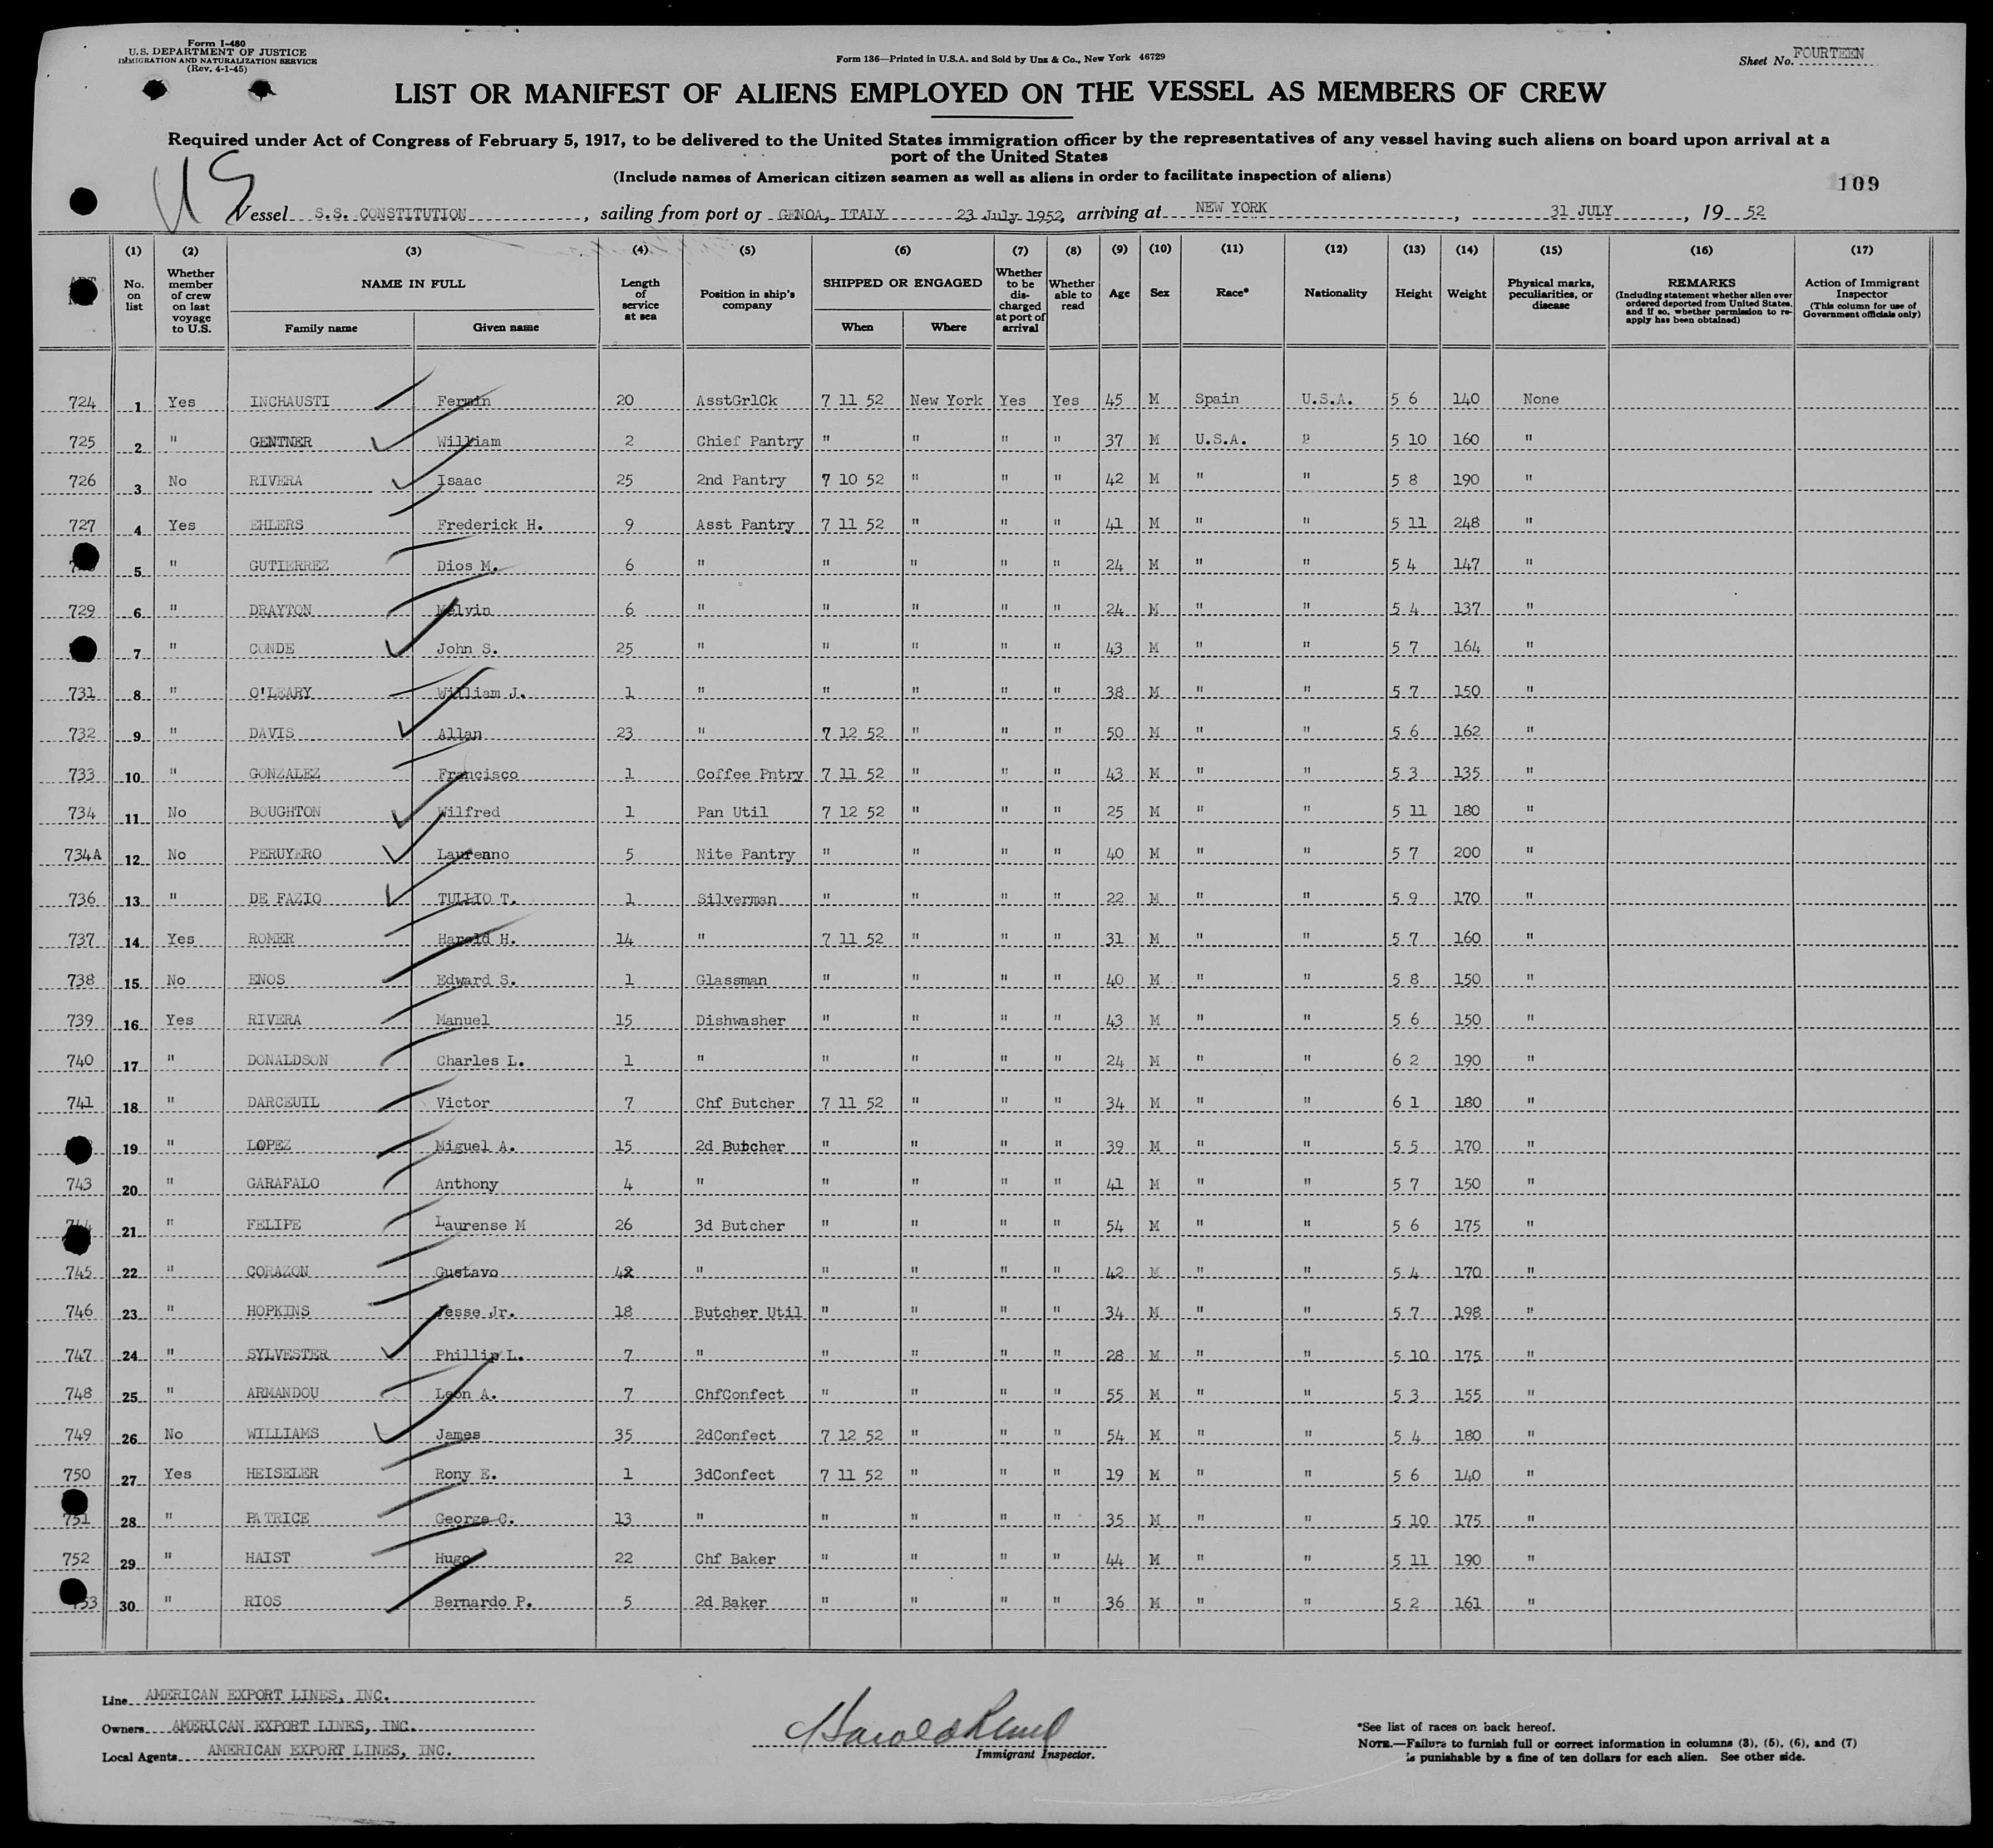 Form I-480
U.S. DEPARTMENT OF JUSTICE
IMMIGRATION AND NATURALIZATION SERVICE
(Rev. 4-1-45)
Form 136—Printed in U.S.A. and Sold by Unz & Co., New York 46729
Sheet No. FOURTEEN
LIST OR MANIFEST OF ALIENS EMPLOYED ON THE VESSEL AS MEMBERS OF CREW
Required under Act of Congress of February 5, 1917, to be delivered to the United States immigration officer by the representatives of any vessel having such aliens on board upon arrival at a
port of the United States
(Include names of American citizen seamen as well as aliens in order to facilitate inspection of aliens)
109
US
Vessel S.S. CONSTITUTION, sailing from port of GENOA, ITALY 23 July 1952, arriving at NEW YORK, 31 JULY, 19 52
(1) (2) (3) (4) (5) (6) (7) (8) (9) (10) (11) (12) (13) (14) (15) (16) (17)
No. on list
Whether member of crew on last voyage to U.S.
NAME IN FULL
Family name Given name
Length of service at sea
Position in ship's company
SHIPPED OR ENGAGED
When Where
Whether to be discharged at port of arrival
Whether able to read
Age
Sex
Race*
Nationality
Height
Weight
Physical marks, peculiarities, or disease
REMARKS
(Including statement whether alien ever ordered deported from United States, and if so, whether permission to re-apply has been obtained)
Action of Immigrant Inspector
(This column for use of Government officials only)
724 1 Yes INCHAUSTI Fermin 20 AsstGrlCk 7 11 52 New York Yes Yes 45 M Spain U.S.A. 5 6 140 None
725 2 " GENTNER William 2 Chief Pantry " " " " 37 M U.S.A. " 5 10 160 "
726 3 No RIVERA Isaac 25 2nd Pantry 7 10 52 " " " 42 M " " 5 8 190 "
727 4 Yes EHLERS Frederick H. 9 Asst Pantry 7 11 52 " " " 41 M " " 5 11 248 "
5 " GUTIERREZ Dios M. 6 " " " " " 24 M " " 5 4 147 "
729 6 " DRAYTON Melvin 6 " " " " " 24 M " " 5 4 137 "
7 " CONDE John S. 25 " " " " " 43 M " " 5 7 164 "
731 8 " O'LEARY William J. 1 " " " " " 38 M " " 5 7 150 "
732 9 " DAVIS Allan 23 " 7 12 52 " " " 50 M " " 5 6 162 "
733 10 " GONZALEZ Francisco 1 Coffee Pntry 7 11 52 " " " 43 M " " 5 3 135 "
734 11 No BOUGHTON Wilfred 1 Pan Util 7 12 52 " " " 25 M " " 5 11 180 "
734A 12 No PERUYERO Laureano 5 Nite Pantry " " " " 40 M " " 5 7 200 "
736 13 " DE FAZIO TULLIO T. 1 Silverman " " " " 22 M " " 5 9 170 "
737 14 Yes ROMER Harold H. 14 " 7 11 52 " " " 31 M " " 5 7 160 "
738 15 No ENOS Edward S. 1 Glassman " " " " 40 M " " 5 8 150 "
739 16 Yes RIVERA Manuel 15 Dishwasher " " " " 43 M " " 5 6 150 "
740 17 " DONALDSON Charles L. 1 " " " " " 24 M " " 6 2 190 "
741 18 " DARCEUIL Victor 7 Chf Butcher 7 11 52 " " " 34 M " " 6 1 180 "
19 " LOPEZ Miguel A. 15 2d Butcher " " " " 39 M " " 5 5 170 "
743 20 " GARAFALO Anthony 4 " " " " " 41 M " " 5 7 150 "
744 21 " FELIPE Laurense M 26 3d Butcher " " " " 54 M " " 5 6 175 "
745 22 " CORAZON Gustavo " " " " " 42 M " " 5 4 170 "
746 23 " HOPKINS Jesse Jr. 18 Butcher Util " " " " 34 M " " 5 7 198 "
747 24 " SYLVESTER Phillip L. 7 " " " " " 28 M " " 5 10 175 "
748 25 " ARMANDOU Leon A. 7 ChfConfect " " " " 55 M " " 5 3 155 "
749 26 No WILLIAMS James 35 2dConfect 7 12 52 " " " 54 M " " 5 4 180 "
750 27 Yes HEISELER Rony E. 1 3dConfect 7 11 52 " " " 19 M " " 5 6 140 "
751 28 " PATRICE George C. 13 " " " " " 35 M " " 5 10 175 "
752 29 " HAIST Hugo 22 Chf Baker " " " " 44 M " " 5 11 190 "
753 30 " RIOS Bernardo P. 5 2d Baker " " " " 36 M " " 5 2 161 "
Line AMERICAN EXPORT LINES, INC.
Owners AMERICAN EXPORT LINES, INC.
Local Agents AMERICAN EXPORT LINES, INC.
Harold
Immigrant Inspector.
*See list of races on back hereof.
NOTE.—Failure to furnish full or correct information in columns (3), (5), (6), and (7)
is punishable by a fine of ten dollars for each alien. See other side.